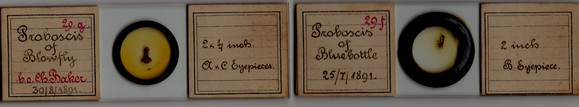 29.g
Proboscis
of
Blowfly
C. Baker
30/8/1891.
2 x 4 inch.
A & C Eyepieces.
29.f
Proboscis
of
Bluebottle
25/7/1891.
2 inch
B. Eyepiece.